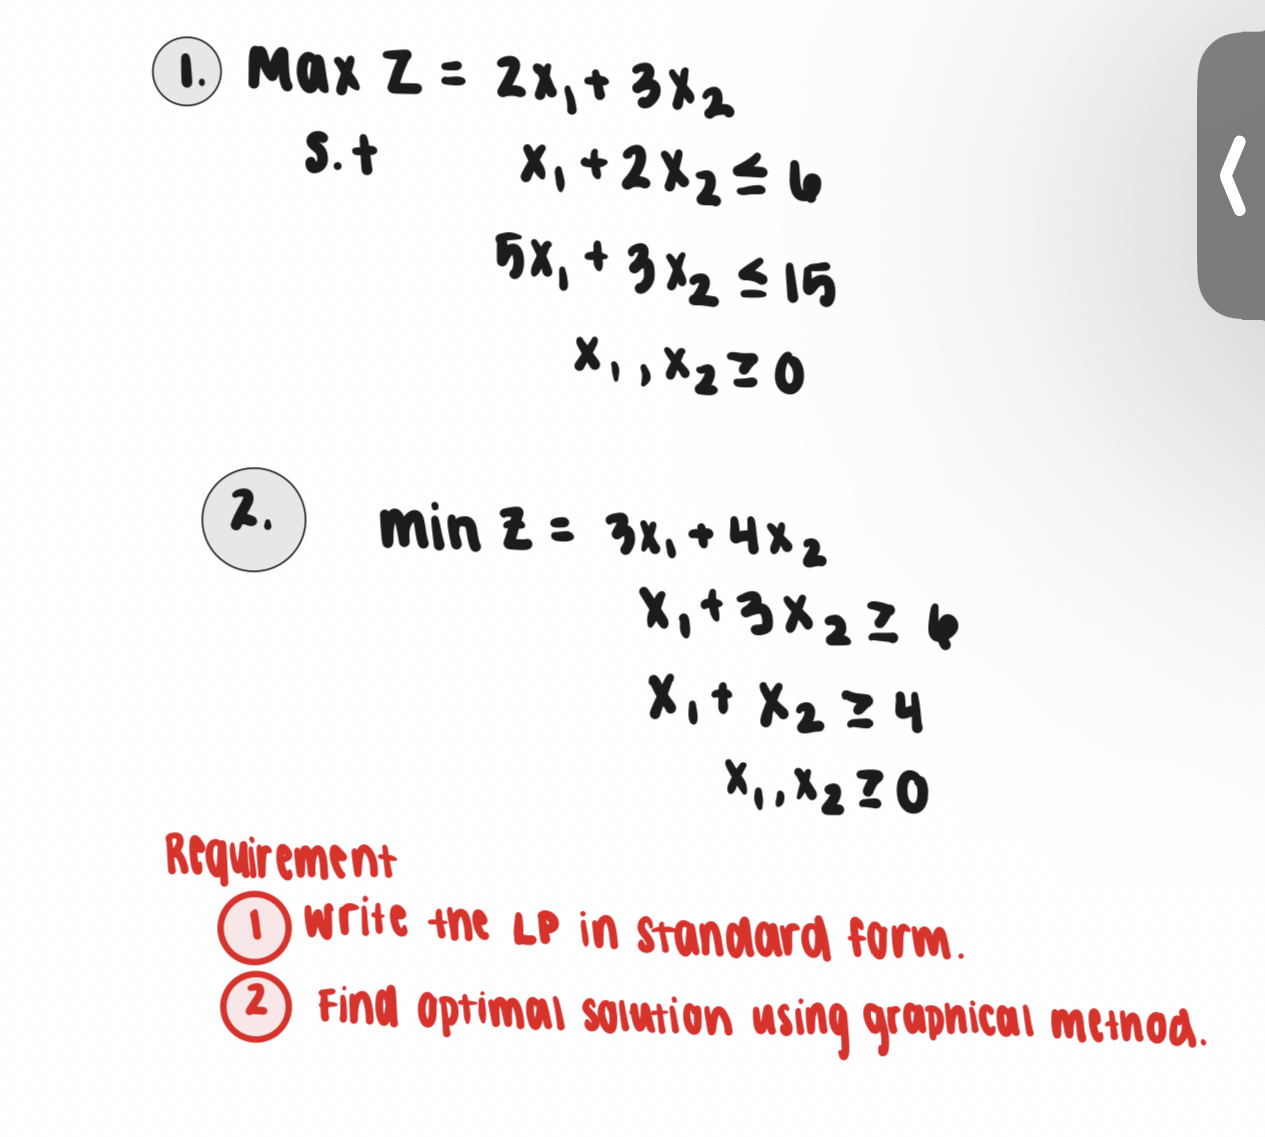 1. Max Z = 2x₁ + 3x₂
S.t x₁ + 2x₂ ≤ 6
5x₁ + 3x₂ ≤ 15
x₁, x₂ ≥ 0
2. min Z = 3x₁ + 4x₂
x₁ + 3x₂ ≥ 6
x₁ + x₂ ≥ 4
x₁, x₂ ≥ 0
Requirement
1 Write the LP in standard form.
2 Find optimal solution using graphical method.